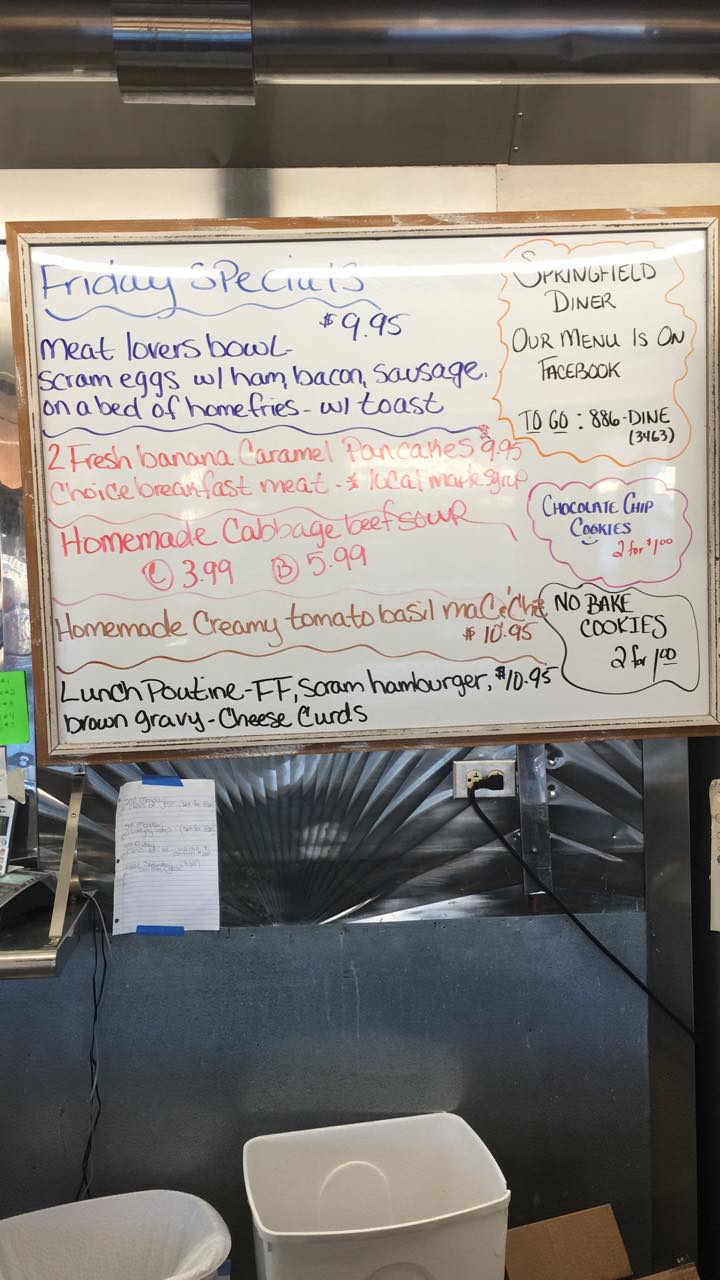 Friday Specials
$9.95
Meat lovers bowl-
scram eggs w/ ham, bacon, sausage.
on a bed of homefries - w/ toast
2 Fresh banana Caramel Pancakes $9.95
Choice breakfast meat - * local made syrup
Homemade Cabbage beef sour
C 3.99 B 5.99
Homemade Creamy tomato basil mac & che
$10.95
Lunch Poutine - FF, scram hamburger, $10.95
brown gravy - Cheese Curds
SPRINGFIELD
DINER
OUR MENU IS ON
FACEBOOK
TO GO : 886-DINE
(3463)
CHOCOLATE CHIP
COOKIES
2 for $1.00
NO BAKE
COOKIES
2 for 1.00